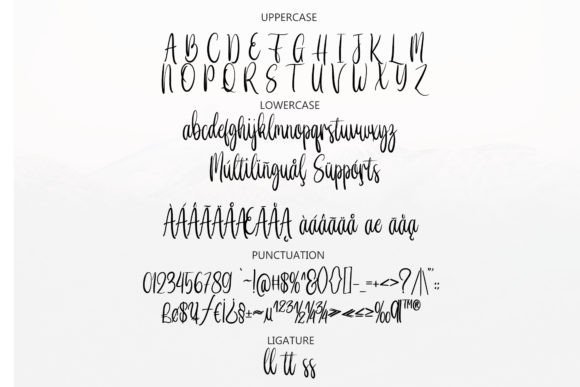 UPPERCASE
A B C D E F G H I J K L M
N O P Q R S T U V W X Y Z
LOWERCASE
abcdefghijklmnopqrstuvwxyz
Múltilíñguåļ Sūppórts
ÀÁÂÃÄÅÆĀÅĄ àáâãäå æ āåą
PUNCTUATION
0123456789 `~!@#$%^&(){}[]-_=+<>?/|\"':;
¢$¥ƒ€¡¿§±~µ¹²³½¼¾><≤≥‰¶™®
LIGATURE
ll tt ss